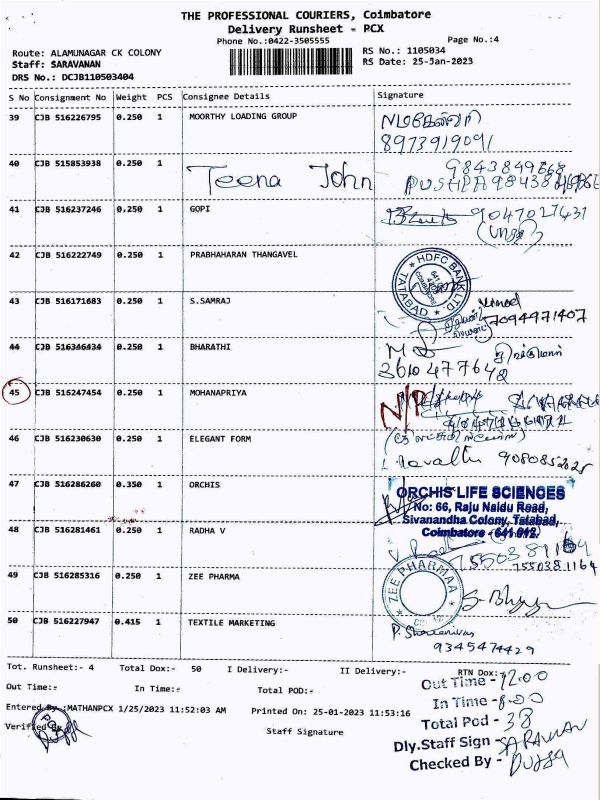 THE PROFESSIONAL COURIERS, Coimbatore
Delivery Runsheet - PCX
Phone No.:0422-3505555
Page No.:4
Route: ALAMUNAGAR CK COLONY
RS No.: 1105034
Staff: SARAVANAN
RS Date: 25-Jan-2023
DRS No.: DCJB110503404
S No Consignment No Weight PCS Consignee Details Signature
39 CJB 516226795 0.250 1 MOORTHY LOADING GROUP
8973919091
40 CJB 515853938 0.250 1 Teena John
PUSHPA
41 CJB 516237246 0.250 1 GOPI 9047027431
42 CJB 516222749 0.250 1 PRABHAHARAN THANGAVEL
HDFC BANK LTD.
TATABAD
43 CJB 516171683 0.250 1 S.SAMRAJ
7094971407
44 CJB 516346434 0.250 1 BHARATHI
45 CJB 516247454 0.250 1 MOHANAPRIYA
N/P
46 CJB 516230630 0.250 1 ELEGANT FORM
47 CJB 516286260 0.350 1 ORCHIS
ORCHIS LIFE SCIENCES
No: 66, Raju Naidu Road,
Sivanandha Colony, Tatabad,
Coimbatore - 641 012.
48 CJB 516281461 0.250 1 RADHA V
7550381164
49 CJB 516285316 0.250 1 ZEE PHARMA
ZEE PHARMAA
50 CJB 516227947 0.415 1 TEXTILE MARKETING
9345474429
Tot. Runsheet:- 4 Total Dox:- 50 I Delivery:- II Delivery:- RTN Dox:-
Out Time:- In Time:- Total POD:-
Out Time - 12.00
In Time - 8.00
Entered By :MATHANPCX 1/25/2023 11:52:03 AM Printed On: 25-01-2023 11:53:16
Total Pod - 38
Verified By
Staff Signature
Dly.Staff Sign - SARAVANAN
Checked By -